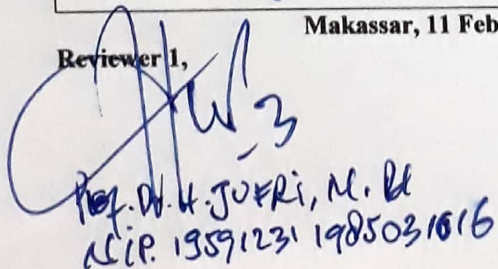 Makassar, 11 Feb
Reviewer 1,
Prof. Dr. H. JUFRI, M. Pd
NIP. 19591231 198503 1016